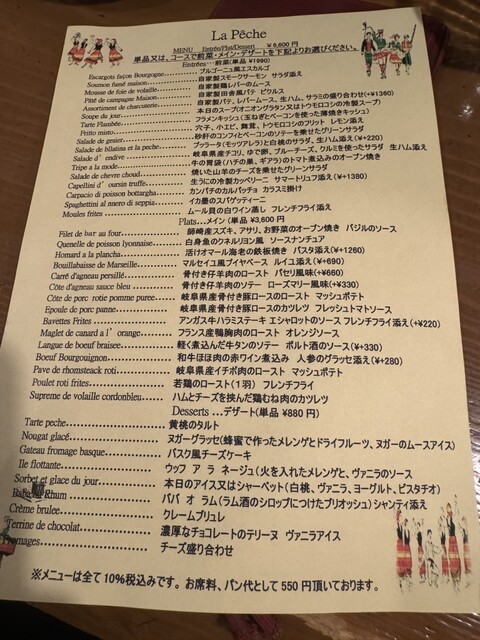 La Pêche
MENU Entrée/Plat/Dessert ¥6,600円
単品又は、コースで前菜・メイン・デザートを下記よりお選びください。
Entrées…前菜(単品 ¥1990)
Escargots façon Bourgogne ブルゴーニュ風エスカルゴ
Soumon fumé maison 自家製スモークサーモン サラダ添え
Mousse de foie de volaille 自家製鶏レバーのムース
Pâté de campagne Maison 自家製田舎風パテ ピクルス
Assortiment de charcuterie 自家製パテ、レバームース、生ハム、サラミの盛り合わせ(+¥1360)
Soupe du jour 本日のスープ(オニオングラタン又はトウモロコシの冷製スープ)
Tarte Flambée フラメンキッシュ(玉ねぎとベーコンを使った薄焼きキッシュ)
Fritto misto 穴子、小エビ、舞茸、トウモロコシのフリット レモン添え
Salade de gesier 砂肝のコンフィとベーコンのソテーを乗せたグリーンサラダ
Salade de bllatina et la peche ブッラータ(モッツアレラ)と白桃のサラダ、生ハム添え(+¥220)
Salade d'endive 岐阜県産チコリ、ゆで卵、ブルーチーズ、クルミを使ったサラダ 生ハム添え
Tripe a la mode 牛の胃袋(ハチの巣、ギアラ)のトマト煮込みのオーブン焼き
Salade de chevre choud 焼いた山羊のチーズを乗せたグリーンサラダ
Capellini d'oursin truffe 生うにの冷製カッペリーニ サマートリュフ添え(+¥1380)
Carpacio de poisson bottargha カンパチのカルパッチョ カラスミ掛け
Spaghettini al nnero di seppia イカ墨のスパゲッティーニ
Moules frites ムール貝の白ワイン蒸し フレンチフライ添え
Plats…メイン (単品 ¥3,600円
Filet de bar au four 師崎産スズキ、アサリ、お野菜のオーブン焼き バジルのソース
Quenelle de poisson lyonnaise 白身魚のクネルリヨン風 ソースナンチュア
Homard a la plancha 活けオマール海老の鉄板焼き パスタ添え(+¥1260)
Bouillabaisse de Marseille マルセイユ風ブイヤベース ルイユ添え(+¥690)
Carré d'agneau persillé 骨付き仔羊肉のロースト パセリ風味(+¥660)
Côte d'agneau sauce bleu 骨付き仔羊肉のソテー ローズマリー風味(+¥330)
Côte de porc rotie pomme puree 岐阜県産骨付き豚ロースのロースト マッシュポテト
Epoule de porc panne 岐阜県産骨付き豚ロースのカツレツ フレッシュトマトソース
Bavettes Frites アンガス牛ハラミステーキ エシャロットのソース フレンチフライ添え(+¥220)
Maglet de canard a l'orange フランス産鴨胸肉のロースト オレンジソース
Langue de boeuf braisee 軽く煮込んだ牛タンのソテー ポルト酒のソース(+¥330)
Boeuf Bourguignon 和牛ほほ肉の赤ワイン煮込み 人参のグラッセ添え(+¥280)
Pave de rhomsteack roti 岐阜県産イチボ肉のロースト マッシュポテト
Poulet roti frites 若鶏のロースト(1羽) フレンチフライ
Supreme de volaille cordonbleu ハムとチーズを挟んだ鶏むね肉のカツレツ
Desserts …デザート(単品 ¥880 円)
Tarte peche 黄桃のタルト
Nougat glacé ヌガーグラッセ(蜂蜜で作ったメレンゲとドライフルーツ、ヌガーのムースアイス)
Gateau fromage basque バスク風チーズケーキ
Ile flottante ウッフ ア ラ ネージュ(火を入れたメレンゲと、ヴァニラのソース
Sorbet et glace du jour 本日のアイス又はシャーベット(白桃、ヴァニラ、ヨーグルト、ピスタチオ)
Baba au Rhum ババ オ ラム(ラム酒のシロップにつけたブリオッシュ)シャンティ添え
Crème brulee クレームブリュレ
Terrine de chocolat 濃厚なチョコレートのテリーヌ ヴァニラアイス
Fromages チーズ盛り合わせ
※メニューは全て10%税込みです。お席料、パン代として 550 円頂いております。